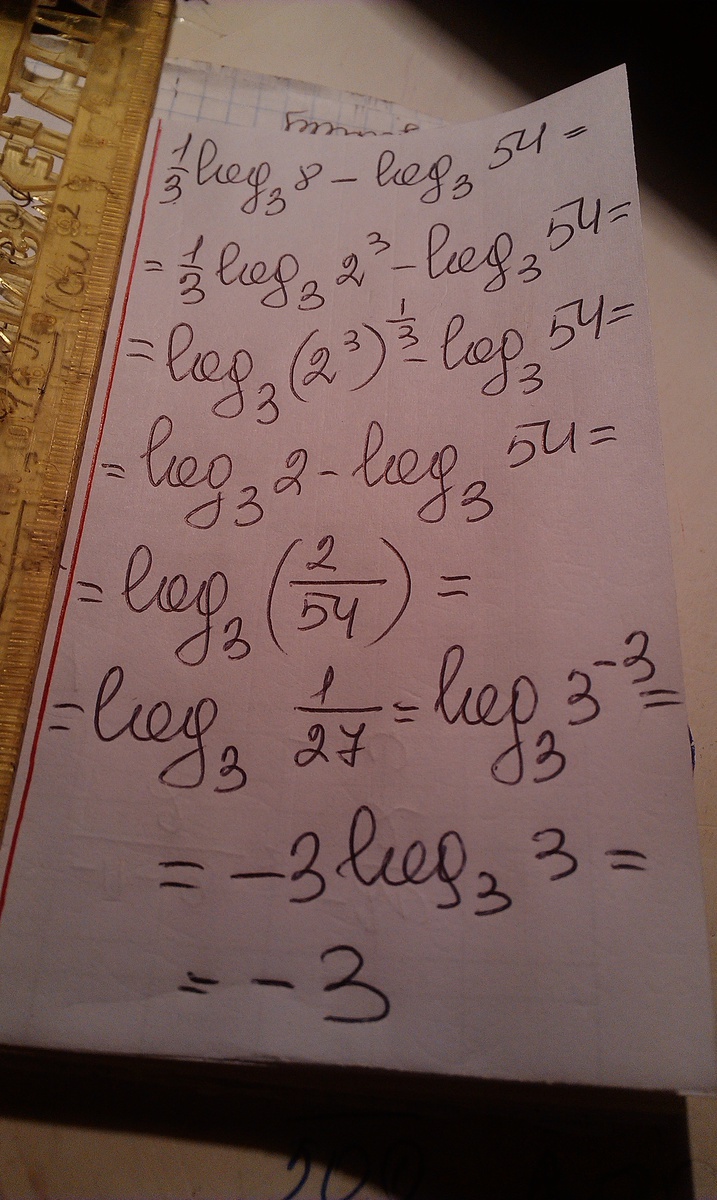 1/3 log₃ 8 − log₃ 54 =
= 1/3 log₃ 2³ − log₃ 54 =
= log₃ (2³)^(1/3) − log₃ 54 =
= log₃ 2 − log₃ 54 =
= log₃ (2/54) =
= log₃ 1/27 = log₃ 3⁻³ =
= −3 log₃ 3 =
= −3